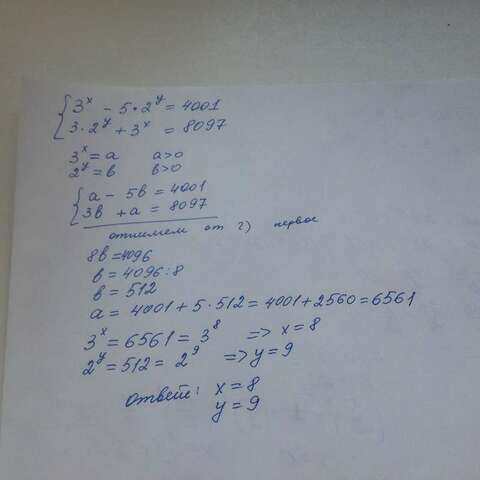 3^x - 5·2^y = 4001
3·2^y + 3^x = 8097
3^x = a a>0
2^y = b b>0
a - 5b = 4001
3b + a = 8097
отнимем от 2) первое
8b = 4096
b = 4096:8
b = 512
a = 4001 + 5·512 = 4001 + 2560 = 6561
3^x = 6561 = 3^8 => x = 8
2^y = 512 = 2^9 => y = 9
ответ: x = 8
y = 9